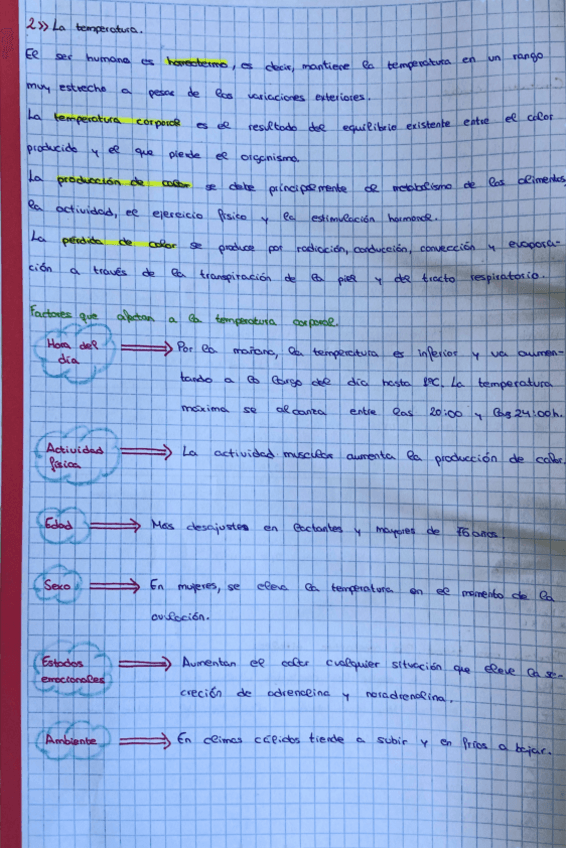 2>> La temperatura.
El ser humano es homeotermo, es decir, mantiene la temperatura en un rango
muy estrecho a pesar de las variaciones exteriores.
La temperatura corporal es el resultado del equilibrio existente entre el calor
producido y el que pierde el organismo.
La producción de calor se debe principalmente al metabolismo de los alimentos,
la actividad, el ejercicio físico y la estimulación hormonal.
La pérdida de calor se produce por radiación, conducción, convección y evapora-
ción a través de la transpiración de la piel y del tracto respiratorio.
Factores que afectan a la temperatura corporal.
Hora del día ⇒ Por la mañana, la temperatura es inferior y va aumen-
tando a lo largo del día hasta 1ºC. La temperatura
máxima se alcanza entre las 20:00 y las 24:00h.
Actividad física ⇒ La actividad muscular aumenta la producción de calor.
Edad ⇒ Mas desajustes en lactantes y mayores de 75 anos.
Sexo ⇒ En mujeres, se eleva la temperatura en el momento de la
ovulación.
Estados emocionales ⇒ Aumentan el calor cualquier situación que eleve la se-
creción de adrenalina y noradrenalina.
Ambiente ⇒ En climas cálidos tiende a subir y en fríos a bajar.